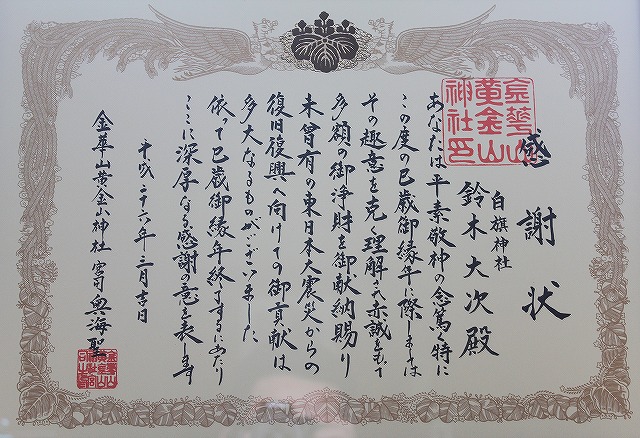 感謝状
白旗神社
鈴木大次殿
あなたは平素敬神の念篤く特に
この度の巳歳御縁年に際しましては
その趣意を克く理解され赤誠をもて
多額の御浄財を御献納賜り
未曾有の東日本大震災からの
復旧復興へ向けての御貢献は
多大なるものがございました
依って巳歳御縁年終了するにあたり
ここに深厚なる感謝の意を表します
平成二十六年三月吉日
金華山黄金山神社 宮司 奥海聖
金華山
黄金山
神社印